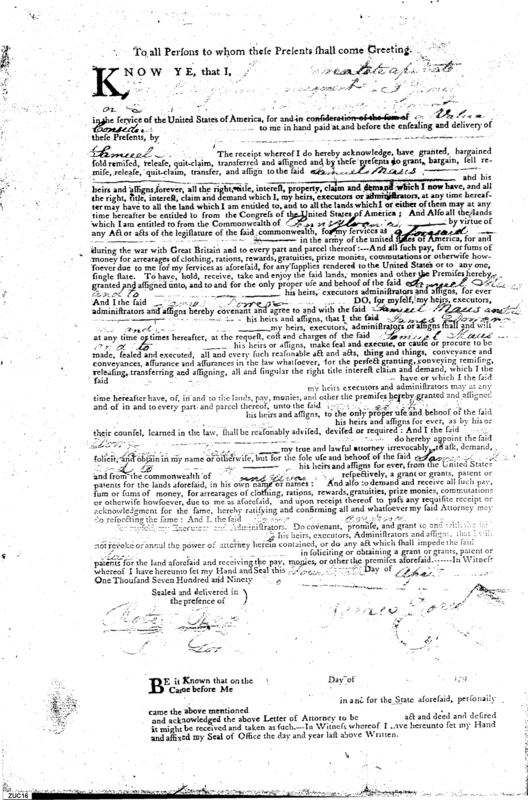 To all Persons to whom these Presents shall come Greeting.
KNOW YE, that I,
in the service of the United States of America, for and in consideration of the sum of
to me in hand paid at and before the ensealing and delivery of
these Presents, by
Samuel The receipt whereof I do hereby acknowledge, have granted, bargained
sold remised, release, quit-claim, transferred and assigned and by these presents do grant, bargain, sell re-
mise, release, quit-claim, transfer, and assign to the said Samuel Maus
and his
heirs and assigns forever, all the right, title, interest, property, claim and demand which I now have, and all
the right, title, interest, claim and demand which I, my heirs, executors or administrators, at any time hereaf-
ter may have to all the land which I am entitled to, and to all the lands which I or either of them may at any
time hereafter be entitled to from the Congress of the United States of America; And Also all the lands
which I am entitled to from the Commonwealth of Pennsylvania by virtue of
any Act or acts of the legislature of the said commonwealth, for my services as aforesaid
in the army of the united states of America, for and
during the war with Great Britain and to every part and parcel thereof—And all such pay, sum or sums of
money for arrearages of clothing, rations, rewards, gratuities, prize monies, commutations or otherwise how-
soever due to me for my services as aforesaid, or for any supplies rendered to the United States or to any one,
single state. To have, hold, receive, take and enjoy the said lands, monies and other the Premises hereby
granted and assigned unto, and to and for the only proper use and behoof of the said Samuel Maus
and to his heirs, executors administrators and assigns, for ever
And I the said James DO, for myself, my heirs, executors,
administrators and assigns hereby covenant and agree to and with the said Samuel Maus
his heirs and assigns, that I the said James
my heirs, executors, administrators or assigns shall and will
at any time or times hereafter, at the request, cost and charges of the said Samuel Maus
and to his heirs or assigns, make seal and execute, or cause or procure to be
made, sealed and executed, all and every such reasonable act and acts, thing and things, conveyance and
conveyances, assurance and assurances in the law whatsoever, for the perfect granting, conveying remising,
releasing, transferring and assigning, all and singular the right title interest claim and demand, which I the
said have or which I the said
my heirs executors and administrators may at any
time hereafter have, of, in and to the lands, pay, monies, and other the premises hereby granted and assigned
and of in and to every part and parcel thereof, unto the said
his heirs and assigns, to the only proper use and behoof of the said
his heirs and assigns for ever, as by his or
their counsel, learned in the law, shall be reasonably advised, devised or required: And I the said
do hereby appoint the said
my true and lawful attorney irrevocably, to ask, demand,
solicit, and obtain in my name or otherwise, but for the sole use and behoof of the said
his heirs and assigns for ever, from the United States
and from the commonwealth of respectively, a grant or grants, patent or
patents for the lands aforesaid, in his own name or names: And also to demand and receive all such pay,
sum or sums of money, for arrearages of clothing, rations, rewards, gratuities, prize monies, commutations
or otherwise howsoever, due to me as aforesaid, and upon receipt thereof to pass any requisite receipt or
acknowledgment for the same, hereby ratifying and confirming all and whatsoever my said Attorney may
do respecting the same: And I, the said
for myself, my Executors and Administrators. Do covenant, promise, and grant to and with the said
his heirs, executors, Administrators and assigns, that I will
not revoke or annul the power of attorney herein contained, or do any act which shall impede the said
in soliciting or obtaining a grant or grants, patent or
patents for the land aforesaid and receiving the pay, monies, or other the premises aforesaid.------In Witness
whereof I have hereunto set my Hand and Seal this Day of
One Thousand Seven Hundred and Ninety
Sealed and delivered in
the presence of
James
BE it Known that on the Day of 179
Came before Me
in and for the State aforesaid, personally
came the above mentioned
and acknowledged the above Letter of Attorney to be act and deed and desired
it might be received and taken as such.---In Witness whereof I have hereunto set my Hand
and affixed my Seal of Office the day and year last above Written.
ZUC16